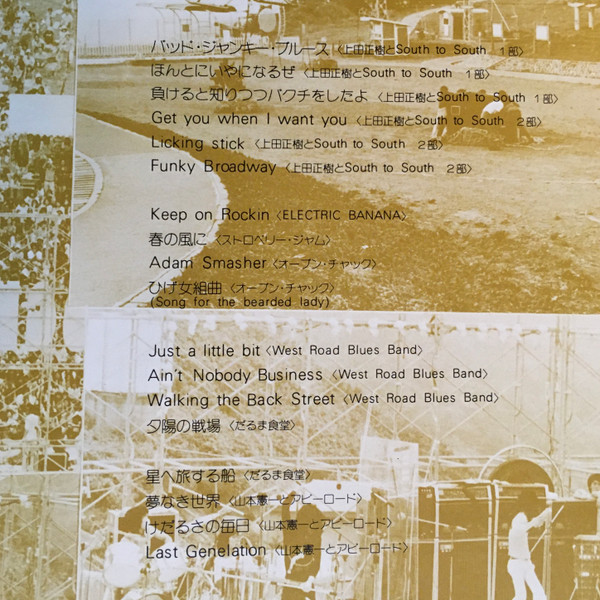 バッド・ジャンキー・ブルース〈上田正樹とSouth to South 1部〉
ほんとにいやになるぜ〈上田正樹とSouth to South 1部〉
負けると知りつつバクチをしたよ〈上田正樹とSouth to South 1部〉
Get you when I want you〈上田正樹とSouth to South 2部〉
Licking stick〈上田正樹とSouth to South 2部〉
Funky Broadway〈上田正樹とSouth to South 2部〉
Keep on Rockin〈ELECTRIC BANANA〉
春の風に〈ストロベリー・ジャム〉
Adam Smasher〈オープン・チャック〉
ひげ女組曲〈オープン・チャック〉
(Song for the bearded lady)
Just a little bit〈West Road Blues Band〉
Ain't Nobody Business〈West Road Blues Band〉
Walking the Back Street〈West Road Blues Band〉
夕陽の戦場〈だるま食堂〉
星へ旅する船〈だるま食堂〉
夢なき世界〈山本憲一とアビーロード〉
けだるさの毎日〈山本憲一とアビーロード〉
Last Genelation〈山本憲一とアビーロード〉